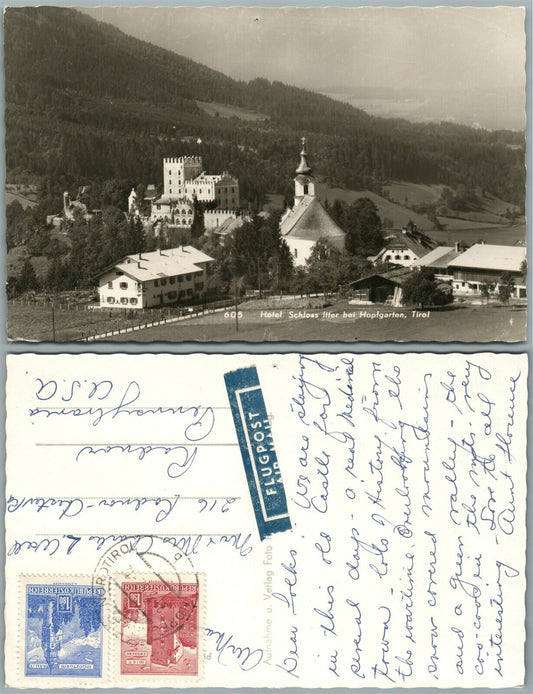 605 Hotel Schloss Itter bei Hopfgarten, Tirol
Dear Folks: We are staying
in this old Castle for
several days - a real Medieval
town - lots of History from
the wartime. Overlooking the
snow covered mountains
and a green valley - the
cos
in the
very
interesting - Love to all
Aunt Florence
FLUGPOST
AIR MAIL
Aufnahme u. Verlag Foto
Mr & Mrs Charles L. Wall
216 Radnor-Chester
Radnor
Pennsylvania
U.S.A
TIROL
REPUBLIK ÖSTERREICH
REPUBLIK ÖSTERREICH